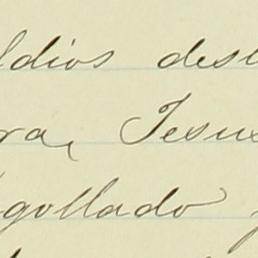 ldios des
ra, Jesus
gollado